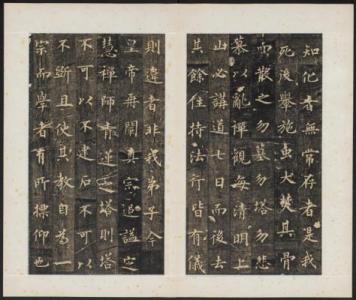 知化者無常存者是我
死後舉施虫犬焚其骨
而散之勿墓勿塔勿悲
慕以亂禪觀每清明上
山必講道七日而後去
其餘住持法行皆有儀
則違者非我弟子今
皇帝再闡真宗追謚定
慧禪師青蓮之塔則塔
不可以不建石不可以
不斷且使其教自為一
宗而學者有所標仰也